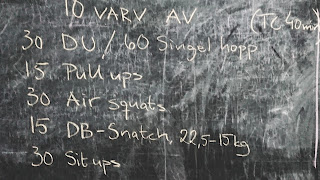 10 VARV AV (TC 40min)
30 DU / 60 Singel hopp
15 Pull ups
30 Air squats
15 DB-Snatch, 22,5-15kg
30 Situps